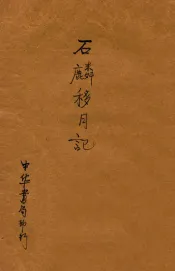 石麟移月記
中华書局印行